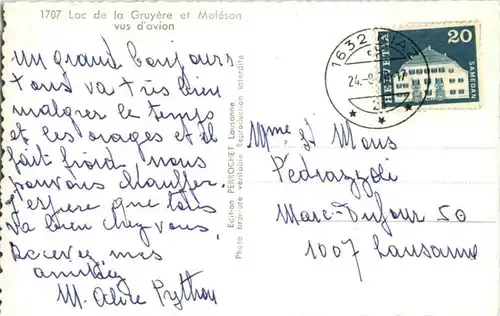 1707 Lac de la Gruyère et Moléson
vus d'avion
un grand bonjours
tous va très bien
malgrer le temps
et les orages et il
fait froid nous
pouvons chauffer.
J'espère que tous
va bien chez vous
Recevez mes
amitiés
M. Python
Edition PERROCHET Lausanne
Photo bromure véritable Reproduction interdite
1632
24.-8
HELVETIA
20
SAMEDAN
Mme et Mons
Pedrazzoli
Marc-Dufour 50
1007 Lausanne